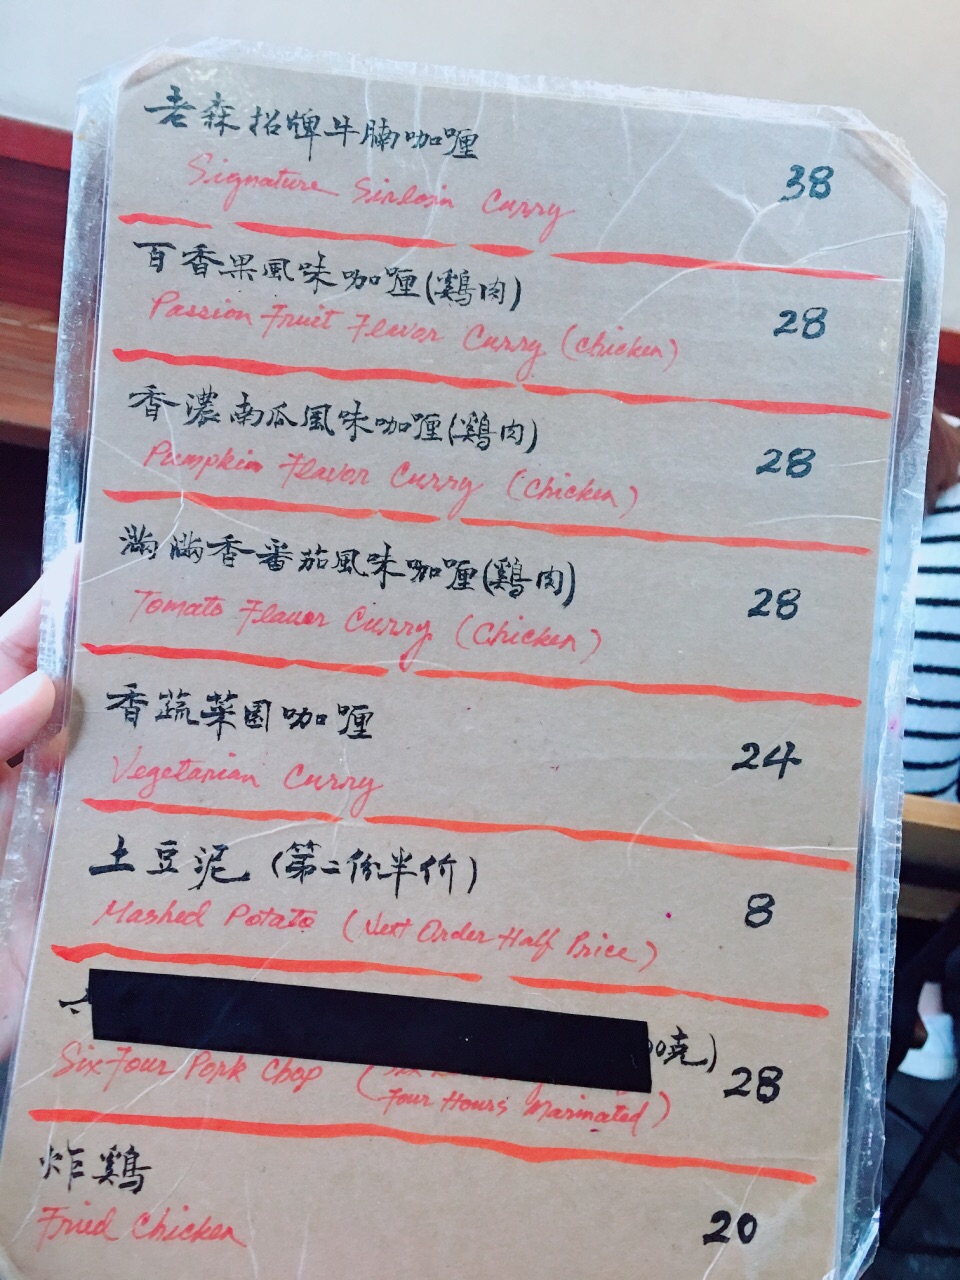 老森招牌牛腩咖喱
Signature Sirloin Curry
38
百香果風味咖喱(鷄肉)
Passion Fruit Flavor Curry (Chicken)
28
香濃南瓜風味咖喱(鷄肉)
Pumpkin Flavor Curry (Chicken)
28
滿滿香番茄風味咖喱(鷄肉)
Tomato Flavor Curry (Chicken)
28
香蔬菜園咖喱
Vegetarian Curry
24
土豆泥 (第二份半价)
Mashed Potato (Next Order Half Price)
8
克)
Six Four Pork Chop
Four Hours Marinated)
28
炸鷄
Fried Chicken
20